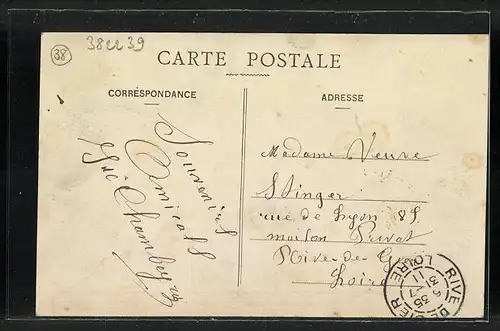 38 3822 39
CARTE POSTALE
CORRESPONDANCE
ADRESSE
Souvenirs
Amicals
Chambeyron
Madame Veuve
Stinger
rue de Lyon 85
maison Privat
Rive-de-Gier
Loire
RIVE DE GIER
LOIRE